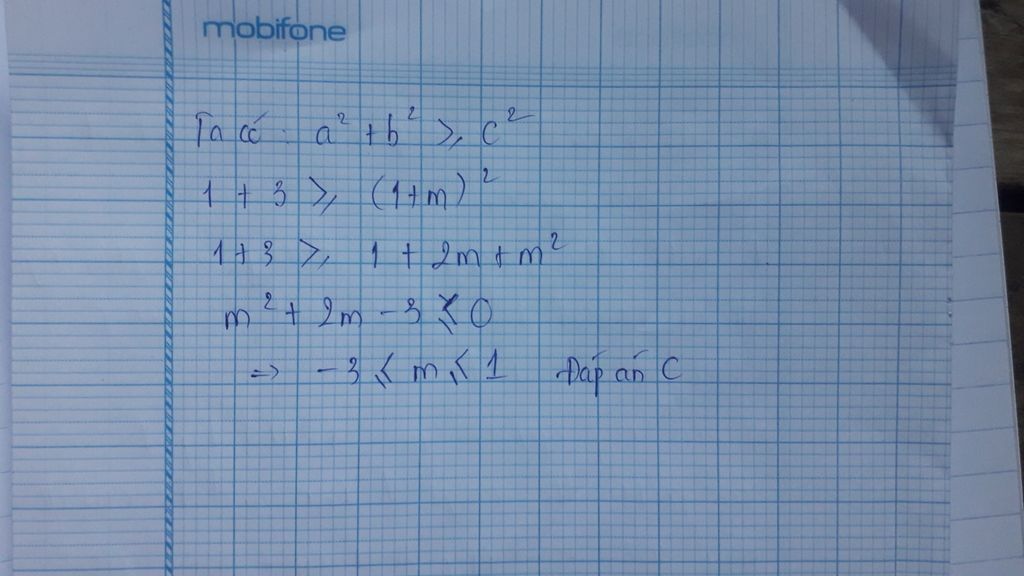 mobifone
Ta có: a² + b² ≥ c²
1 + 3 ≥ (1+m)²
1+3 ≥ 1 + 2m + m²
m² + 2m - 3 ≤ 0
=> -3 ≤ m ≤ 1 Đáp án C